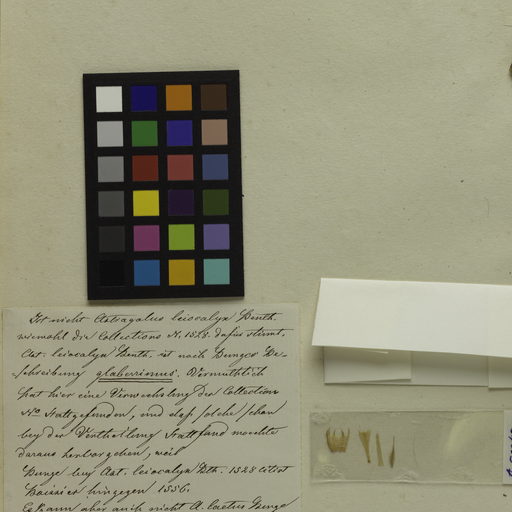 Ist nicht Astragalus leiocalyx Benth.
wiewohl die Collections N. 1528. dafür stimt,
Ast. leiocalyx Benth. ist nach Bunges Be-
schreibung glaberrimus. Vermuthlich
hat hier eine Verwechslung der Collection
No stattgefunden, und daß solche schon
bey der Vertheilung statt fand moechte
daraus hervorgehen, weil
Bunge bey Ast. leiocalyx Bth. 1528 citirt
Boissier hingegen 1556.
Es kann aber auch nicht A. laetus Bunge